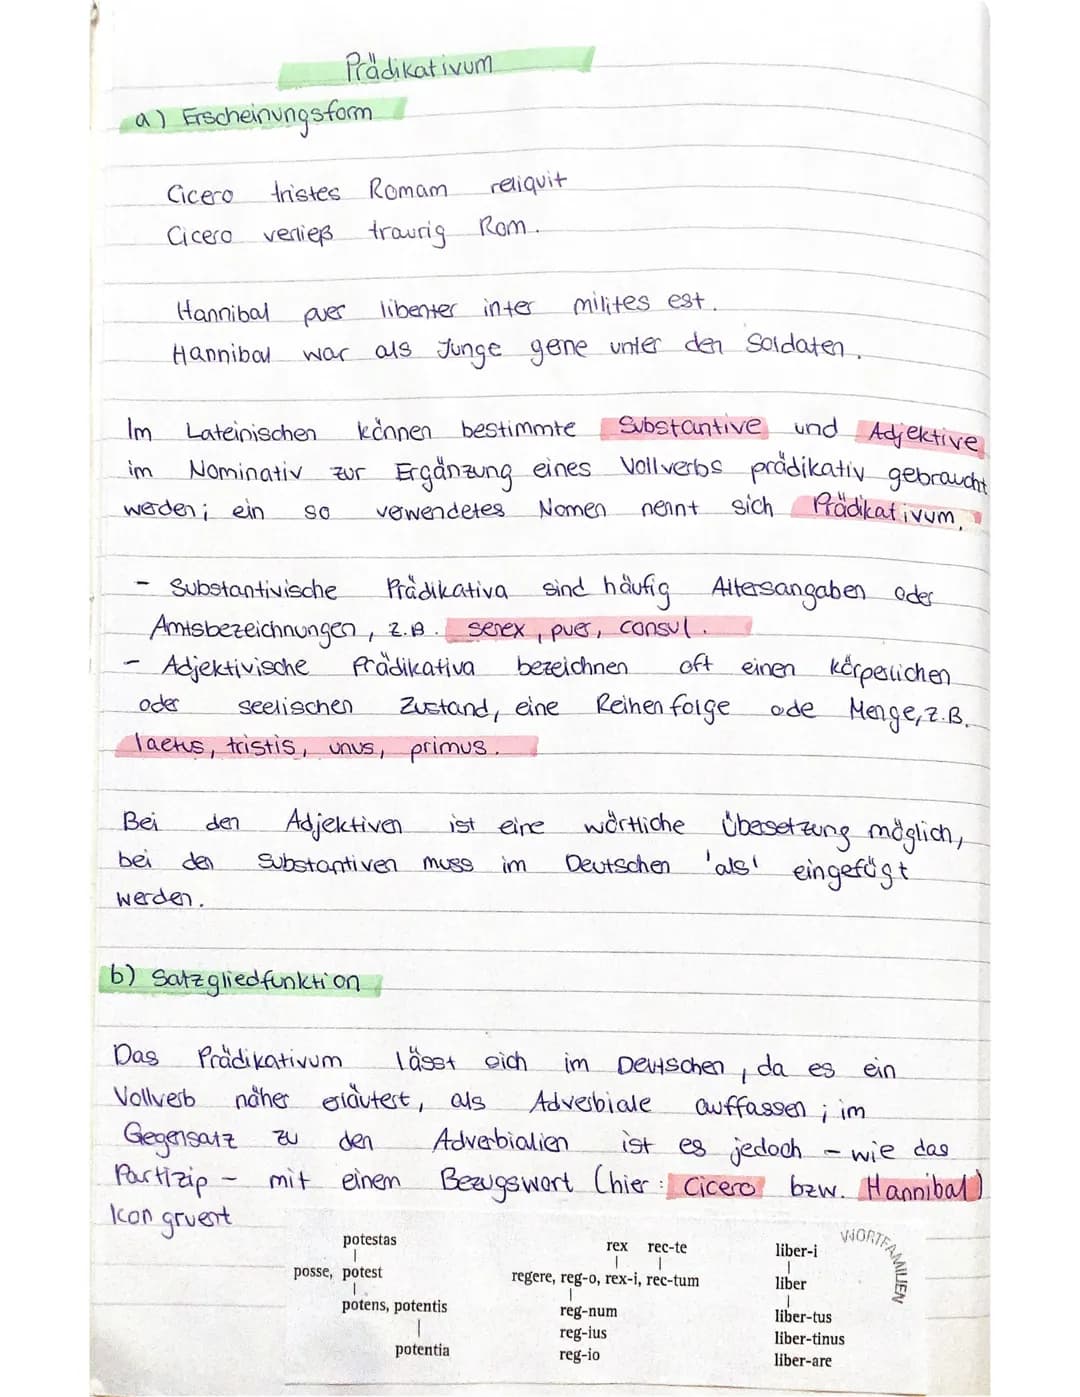 Prädikativum
a) Erscheinungsform
Cicero tristes Romam reliquit
Cicero verließ traurig Rom.
Hannibal puer libenter inter milites est.
Hannibal war als Junge gene unter den Soldaten.
Im Lateinischen können bestimmte Substantive und Adjektive
im Nominativ zur Ergänzung eines Vollverbs prädikativ gebraucht
werden; ein so verwendetes Nomen nennt sich Prädikativum.
- Substantivische Prädikativa sind häufig Altersangaben oder
Amtsbezeichnungen, z.B. senex, puer, consul.
- Adjektivische Prädikativa bezeichnen oft einen körperlichen
oder seelischen Zustand, eine Reihenfolge ode Menge, z.B.
laetus, tristis, unus, primus.
Bei den Adjektiven ist eine wörtliche Übersetzung möglich,
bei den Substantiven muss im Deutschen 'als' eingefügt
werden.
b) Satzgliedfunktion
Das Prädikativum lässt sich im Deutschen, da es ein
Vollverb näher erläutert, als Adverbiale auffassen; im
Gegensatz zu den Adverbialien ist es jedoch - wie das
Partizip - mit einem Bezugswort (hier: Cicero bzw. Hannibal)
kongruent
WORTFAMILIEN
potestas
posse, potest
potens, potentis
potentia
rex rec-te
regere, reg-o, rex-i, rec-tum
reg-num
reg-ius
reg-io
liber-i
liber
liber-tus
liber-tinus
liber-are